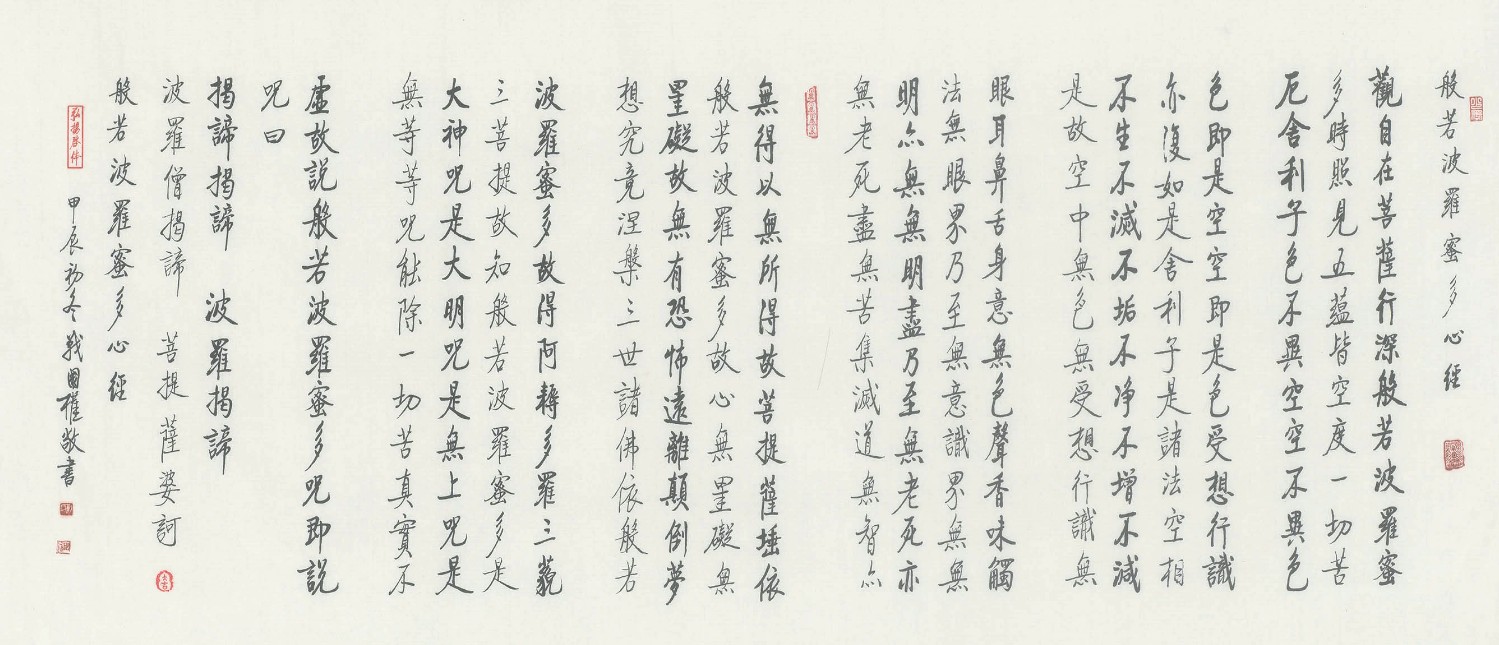 般若波羅蜜多心經
觀自在菩薩行深般若波羅蜜
多時照見五蘊皆空度一切苦
厄舍利子色不異空空不異色
色即是空空即是色受想行識
亦復如是舍利子是諸法空相
不生不滅不垢不净不增不減
是故空中無色無受想行識無
眼耳鼻舌身意無色聲香味觸
法無眼界乃至無意識界無無
明亦無無明盡乃至無老死亦
無老死盡無苦集滅道無智亦
無得以無所得故菩提薩埵依
般若波羅蜜多故心無罣礙無
罣礙故無有恐怖遠離顛倒夢
想究竟涅槃三世諸佛依般若
波羅蜜多故得阿耨多羅三藐
三菩提故知般若波羅蜜多是
大神咒是大明咒是無上咒是
無等等咒能除一切苦真實不
虛故説般若波羅蜜多咒即説
咒曰
揭諦揭諦 波羅揭諦
波羅僧揭諦 菩提薩婆訶
般若波羅蜜多心經
甲辰初冬戰國權敬書